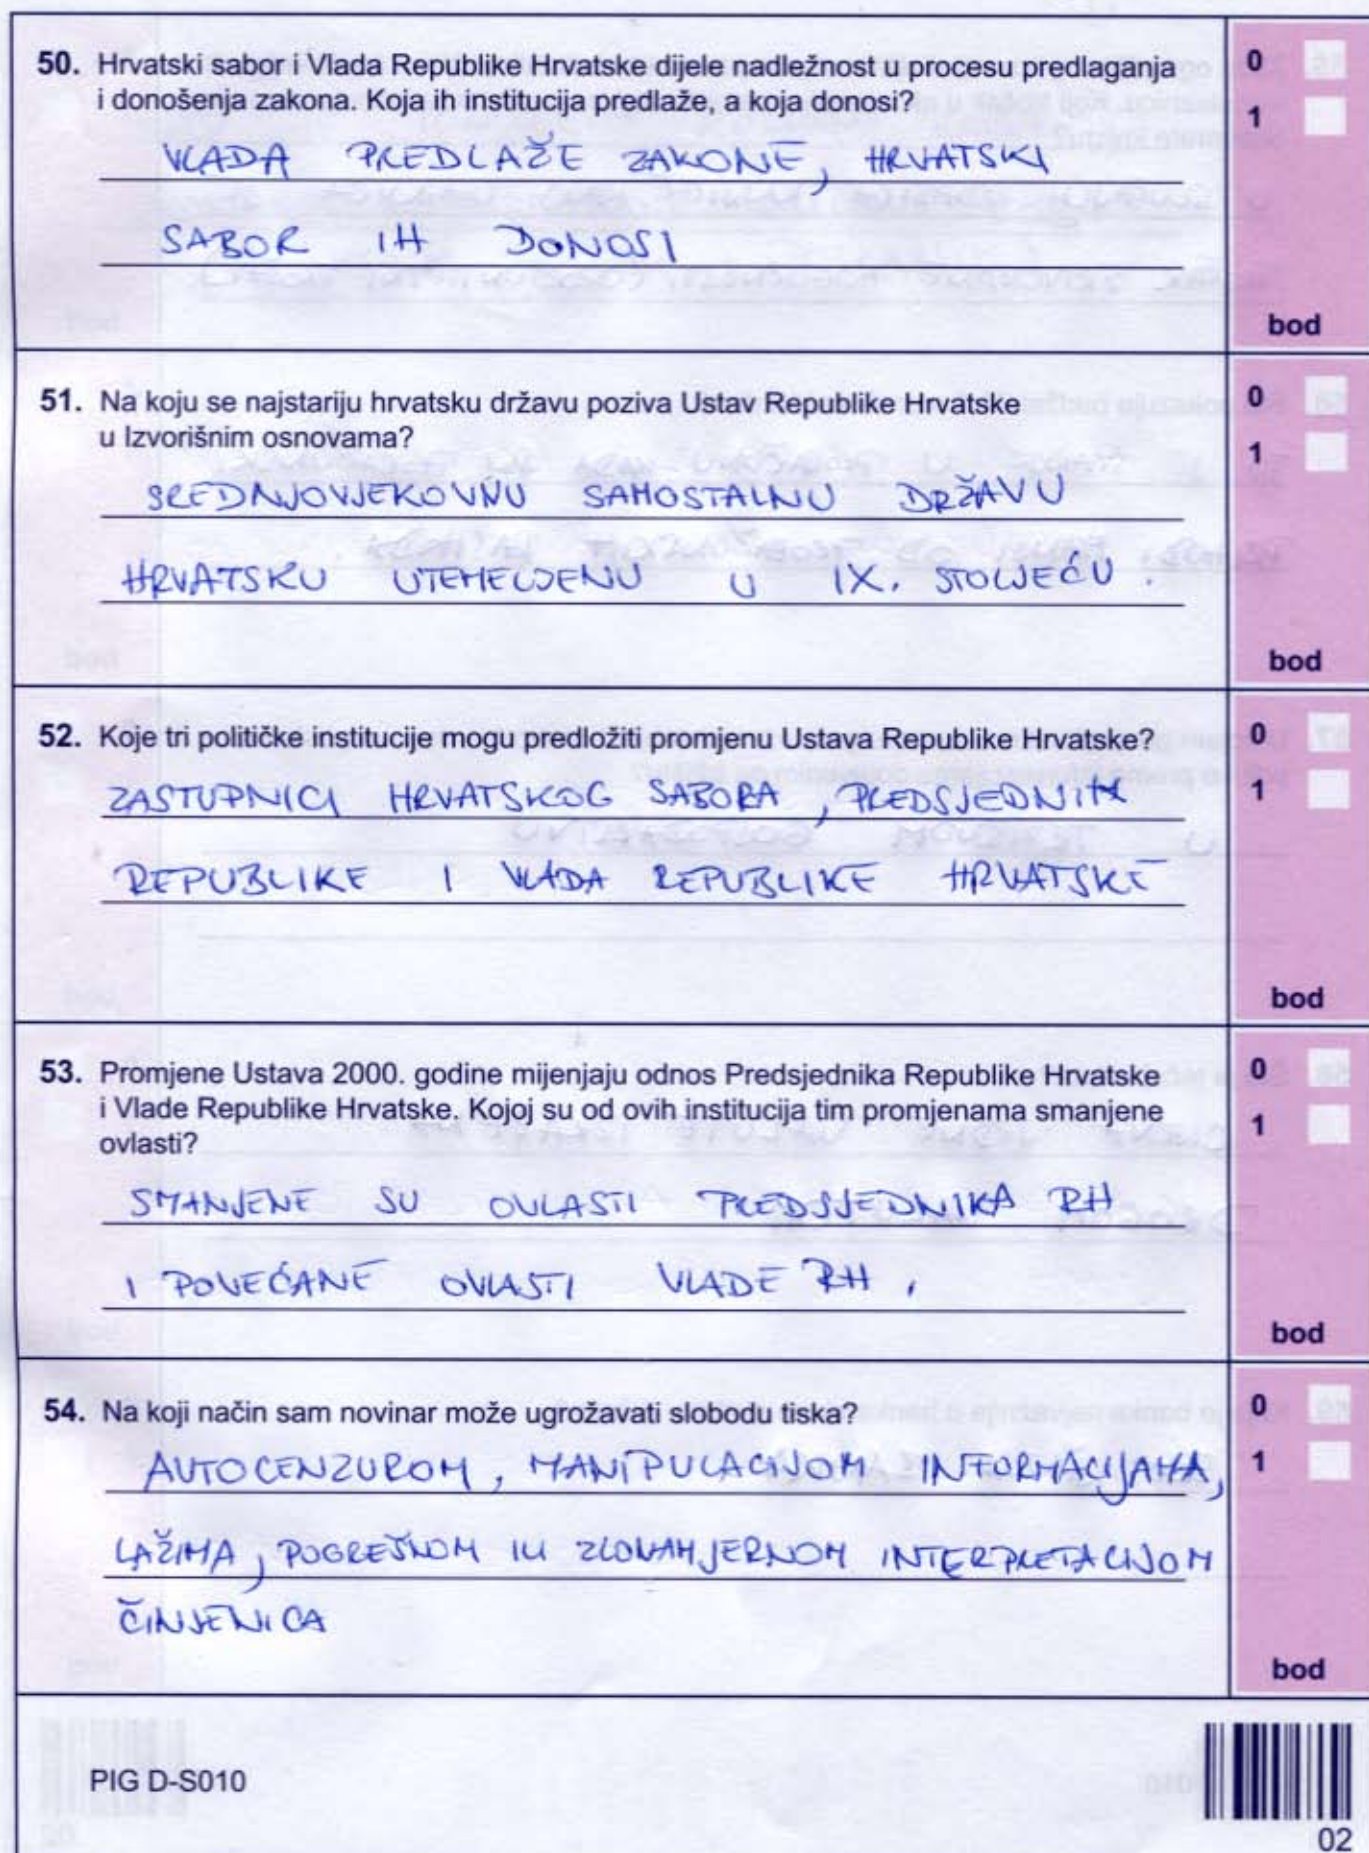 50. Hrvatski sabor i Vlada Republike Hrvatske dijele nadležnost u procesu predlaganja
i donošenja zakona. Koja ih institucija predlaže, a koja donosi?
0
1
VLADA PREDLAŽE ZAKONE, HRVATSKI
SABOR IH DONOSI
bod
51. Na koju se najstariju hrvatsku državu poziva Ustav Republike Hrvatske
u Izvorišnim osnovama?
0
1
SREDNJOVJEKOVNU SAMOSTALNU DRŽAVU
HRVATSKU UTEMELJENU U IX. STOLJEĆU.
bod
52. Koje tri političke institucije mogu predložiti promjenu Ustava Republike Hrvatske?
0
1
ZASTUPNICI HRVATSKOG SABORA, PREDSJEDNIK
REPUBLIKE I VLADA REPUBLIKE HRVATSKE
bod
53. Promjene Ustava 2000. godine mijenjaju odnos Predsjednika Republike Hrvatske
i Vlade Republike Hrvatske. Kojoj su od ovih institucija tim promjenama smanjene
ovlasti?
0
1
SMANJENE SU OVLASTI PREDSJEDNIKA RH
I POVEĆANE OVLASTI VLADE RH.
bod
54. Na koji način sam novinar može ugrožavati slobodu tiska?
0
1
AUTOCENZUROM, MANIPULACIJOM INFORMACIJAMA,
LAŽIMA, POGREŠNOM ILI ZLONAMJERNOM INTERPRETACIJOM
ČINJENICA
bod
PIG D-S010
02